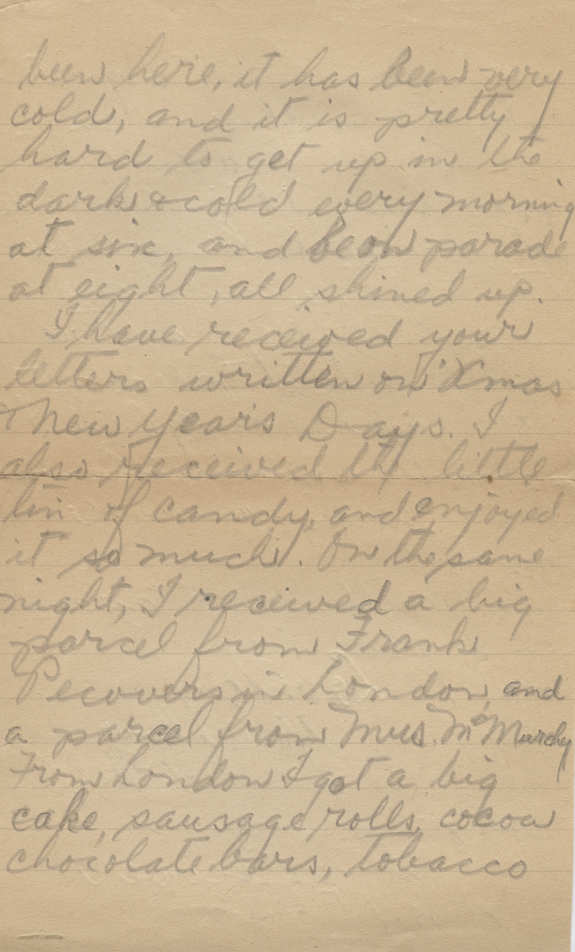 been here, it has been very
cold, and it is pretty
hard to get up in the
dark & cold every morning
at six, and be on parade
at eight, all shined up.
I have received your
letters written on Xmas
& New Year's Days. I
also received the little
tin of candy, and enjoyed
it so much. On the same
night, I received a big
parcel from Frank
Pecovers in London, and
a parcel from Mrs. McMurchy
From London I got a big
cake, sausage rolls, cocoa
chocolate bars, tobacco